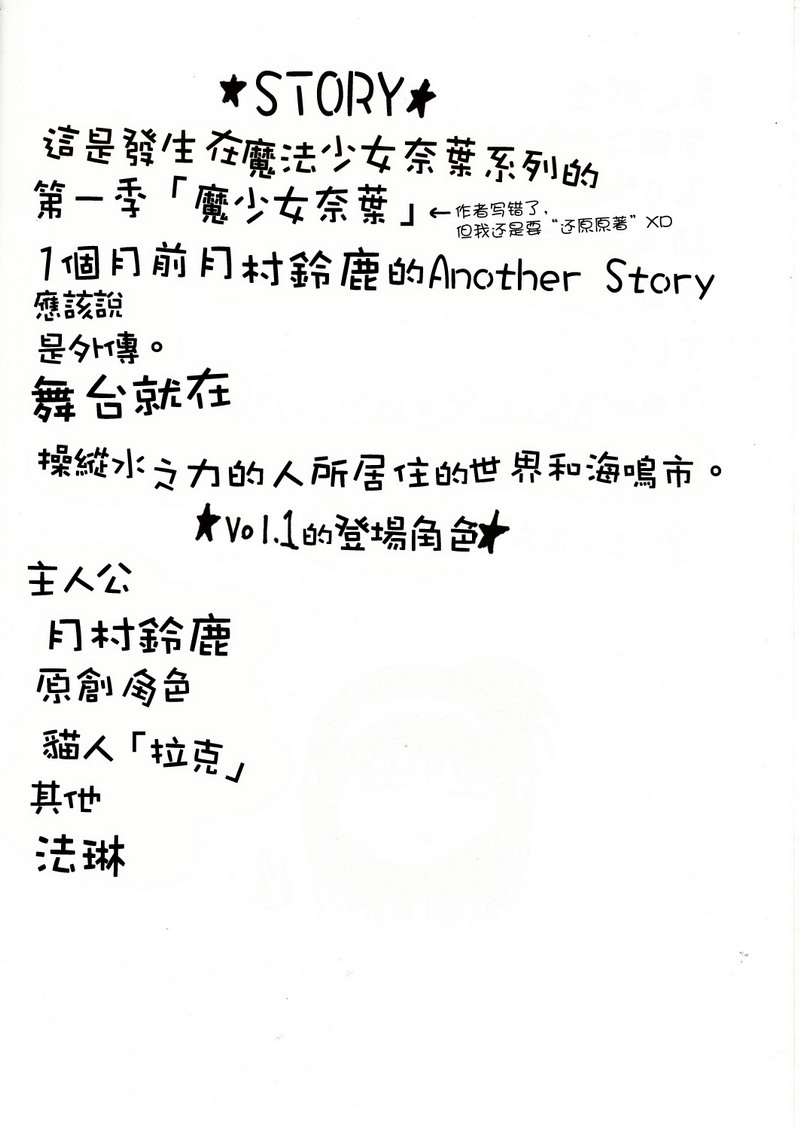 ★STORY★
這是發生在魔法少女奈葉系列的
第一季「魔少女奈葉」←作者写错了,
但我还是要“还原原著”XD
1個月前月村鈴鹿的Another Story
應該說
是外傳。
舞台就在
操縱水之力的人所居住的世界和海鳴市。
★Vol.1的登場角色★
主人公
月村鈴鹿
原創角色
貓人「拉克」
其他
法琳